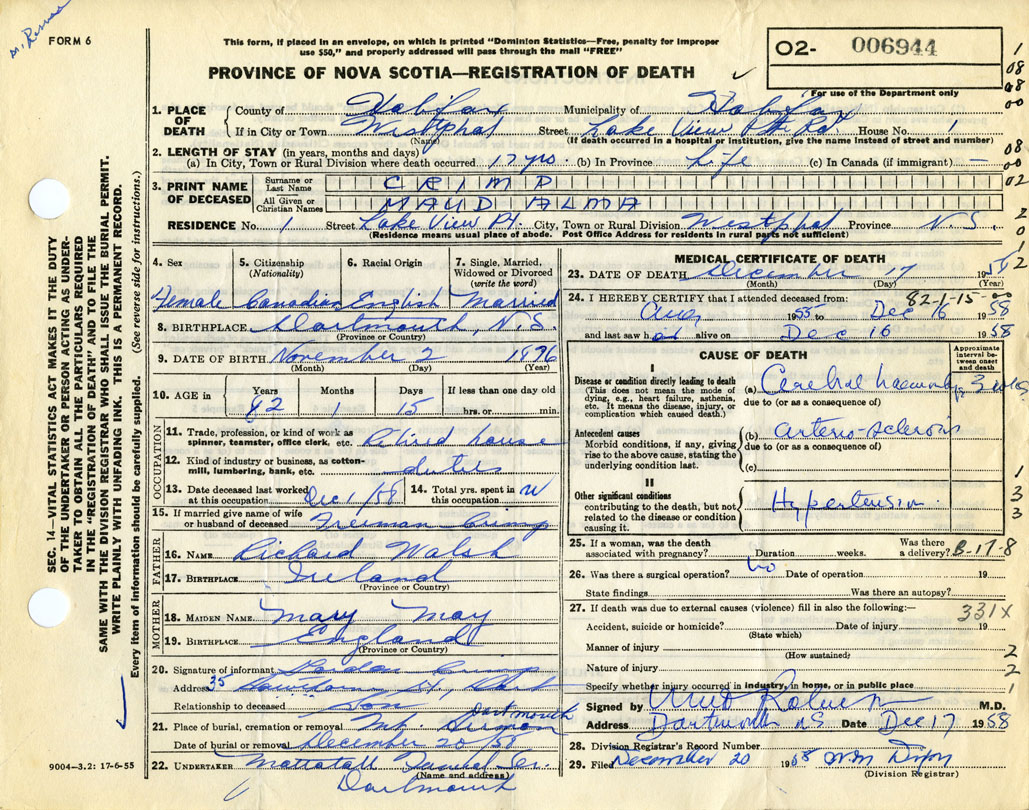 FORM 6
This form, if placed in an envelope, on which is printed "Dominion Statistics—Free, penalty for improper
use $50," and properly addressed will pass through the mail "FREE"
PROVINCE OF NOVA SCOTIA—REGISTRATION OF DEATH
O2- 006944
For use of the Department only
1. PLACE OF DEATH
County of Halifax Municipality of Halifax
If in City or Town Westphal Street Lake View Pt Rd. House No. 1
(Name) (If death occurred in a hospital or institution, give the name instead of street and number)
2. LENGTH OF STAY (in years, months and days)
(a) In City, Town or Rural Division where death occurred 17 yrs. (b) In Province Life (c) In Canada (if immigrant) —
3. PRINT NAME OF DECEASED
Surname or Last Name CRIMP
All Given or Christian Names MAUD ALMA
RESIDENCE No. 1 Street Lake View Pt. City, Town or Rural Division Westphal Province N.S.
(Residence means usual place of abode. Post Office Address for residents in rural parts not sufficient)
4. Sex 5. Citizenship (Nationality) 6. Racial Origin 7. Single, Married, Widowed or Divorced (write the word)
Female Canadian English Married
8. BIRTHPLACE Dartmouth, N.S.
(Province or Country)
9. DATE OF BIRTH November 2 1876
(Month) (Day) (Year)
10. AGE in Years Months Days If less than one day old
82 1 15 hrs. or min.
OCCUPATION
11. Trade, profession, or kind of work as spinner, teamster, office clerk, etc. Retired house
12. Kind of industry or business, as cotton-mill, lumbering, bank, etc. duties
13. Date deceased last worked at this occupation Dec 1/58 14. Total yrs. spent in this occupation
15. If married give name of wife or husband of deceased Freeman Crimp
FATHER
16. NAME Richard Walsh
17. BIRTHPLACE Ireland
(Province or Country)
MOTHER
18. MAIDEN NAME Mary May
19. BIRTHPLACE England
(Province or Country)
20. Signature of informant Gordon Crimp
Address 35 Hawthorn St., Dart
Relationship to deceased Son
21. Place of burial, cremation or removal Mt. Hermon Dartmouth
Date of burial or removal December 20/58
22. UNDERTAKER Mattatall Funeral Ser.
(Name and address)
Dartmouth
MEDICAL CERTIFICATE OF DEATH
23. DATE OF DEATH December 17 1958
(Month) (Day) (Year)
82-1-15-00
24. I HEREBY CERTIFY that I attended deceased from:
Aug, 1955 to Dec 16 1958
and last saw h alive on Dec 16 1958
CAUSE OF DEATH
Approximate interval between onset and death
I
Disease or condition directly leading to death
(This does not mean the mode of dying, e.g., heart failure, asthenia, etc. It means the disease, injury, or complication which caused death.)
(a) Cerebral haemorrhage 3 wks
due to (or as a consequence of)
Antecedent causes
Morbid conditions, if any, giving rise to the above cause, stating the underlying condition last.
(b) arterio-sclerosis
due to (or as a consequence of)
(c)
II
Other significant conditions
contributing to the death, but not related to the disease or condition causing it.
Hypertension
25. If a woman, was the death associated with pregnancy? no Duration weeks. Was there a delivery? B-17-8
26. Was there a surgical operation? Date of operation 19
State findings Was there an autopsy?
27. If death was due to external causes (violence) fill in also the following:— 331X
Accident, suicide or homicide? Date of injury 19
(State which)
Manner of injury
(How sustained)
Nature of injury
Specify whether injury occurred in industry, in home, or in public place
Signed by M.D.
Address Dartmouth NS Date Dec 17 1958
28. Division Registrar's Record Number
29. Filed December 20 1958 Wm Dixon
(Division Registrar)
SEC. 14—VITAL STATISTICS ACT MAKES IT THE DUTY
OF THE UNDERTAKER OR PERSON ACTING AS UNDER-
TAKER TO OBTAIN ALL THE PARTICULARS REQUIRED
IN THE "REGISTRATION OF DEATH" AND TO FILE THE
SAME WITH THE DIVISION REGISTRAR WHO SHALL ISSUE THE BURIAL PERMIT.
WRITE PLAINLY WITH UNFADING INK. THIS IS A PERMANENT RECORD.
Every item of information should be carefully supplied. (See reverse side for instructions.)
9004—3.2: 17-6-55
1
08
08
00
08
00
02
2
0
2
1
3
3
2
2
1